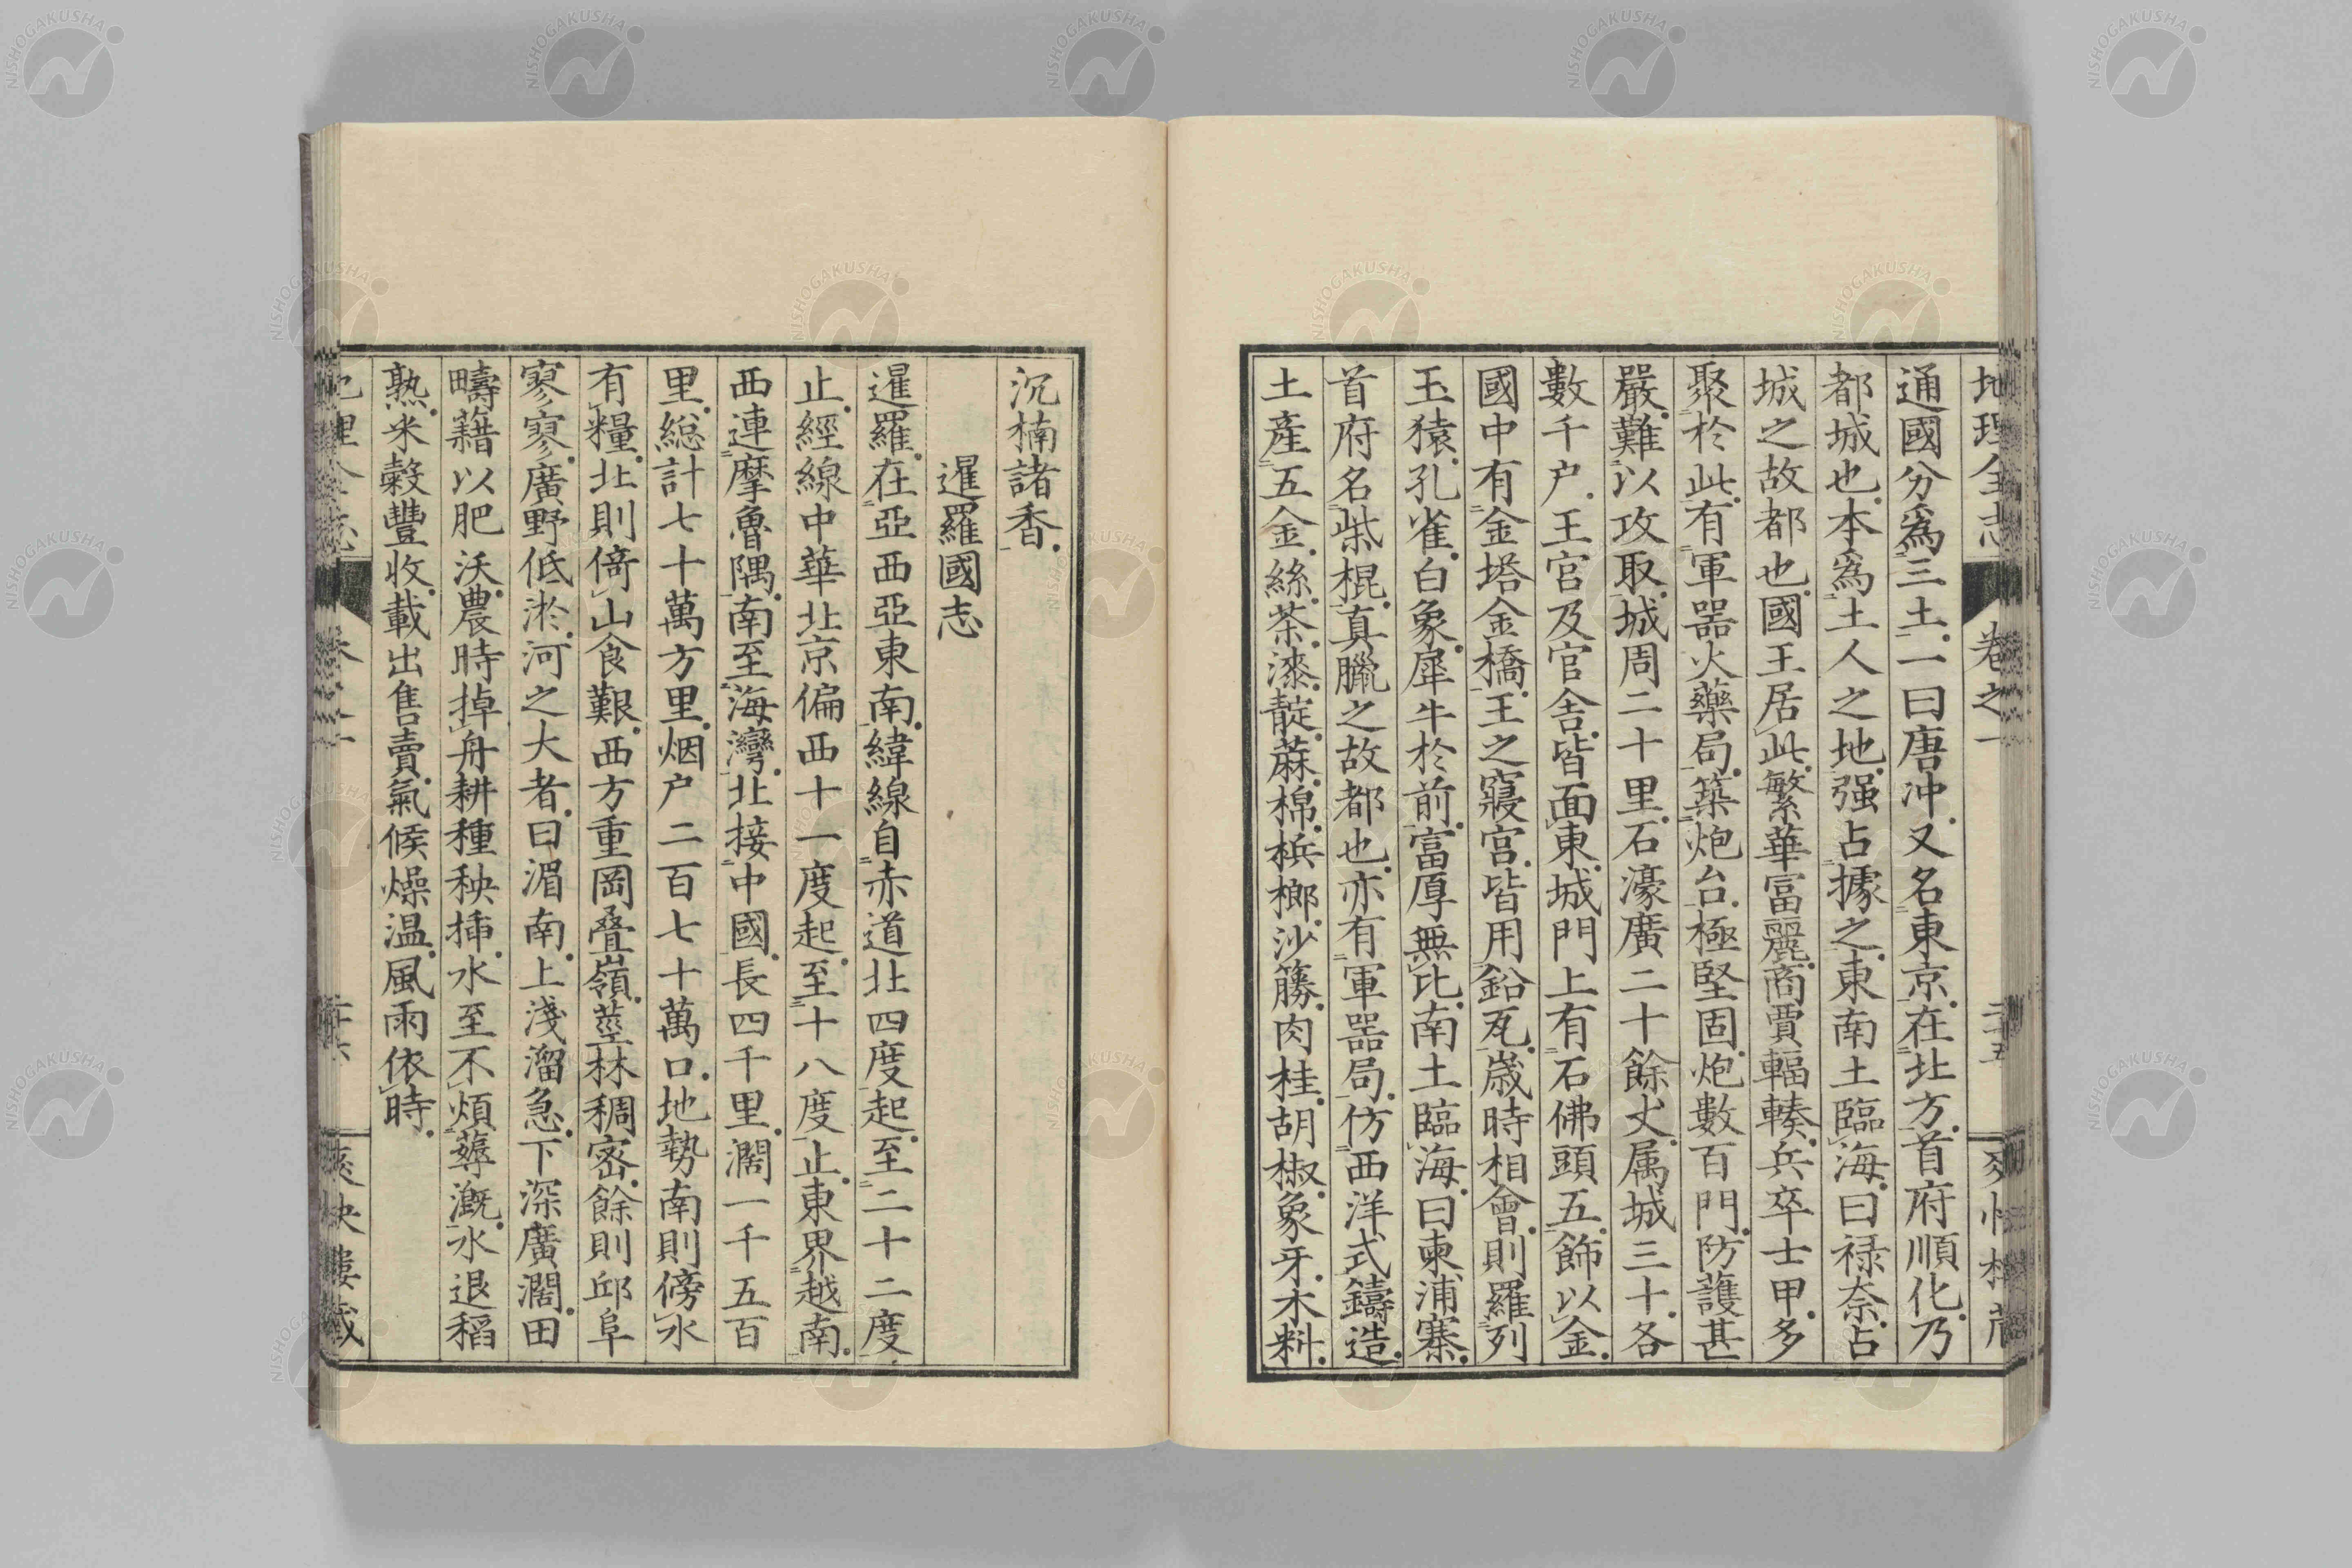 地理全志 卷之一
通國分爲三土一曰唐冲又名東京在北方首府順化乃
都城也本爲土人之地强占據之東南土臨海曰祿奈占
城之故都也國王居此繁華富麗商賈輻輳兵卒士甲多
聚於此有軍器火藥局築炮台極堅固炮數百門防護甚
嚴難以攻取城周二十里石濠廣二十餘丈属城三十各
數千户王官及官舍皆面東城門上有石佛頭五飾以金
國中有金塔金橋王之寢宮皆用鉛瓦歳時相會則羅列
玉猿孔雀白象犀牛於前富厚無比南土臨海曰柬浦寨
首府名柴棍真臘之故都也亦有軍器局仿西洋式鑄造
土產五金絲茶漆靛蔴棉梹榔沙籐肉桂胡椒象牙木料
沉楠諸香
暹羅國志
暹羅在亞西亞東南緯線自赤道北四度起至二十二度
止經線中華北京偏西十一度起至十八度止東界越南
西連摩魯隅南至海灣北接中國長四千里濶一千五百
里総計七十萬方里烟户二百七十萬口地勢南則傍水
有糧北則倚山食艱西方重岡叠嶺莖林稠密餘則邱阜
寥寥廣野低淤河之大者曰湄南上淺溜急下深廣濶田
疇藉以肥沃農時掉舟耕種秧揷水至不煩薅漑水退稻
熟米穀豐收載出售賣氣候燥温風雨依時